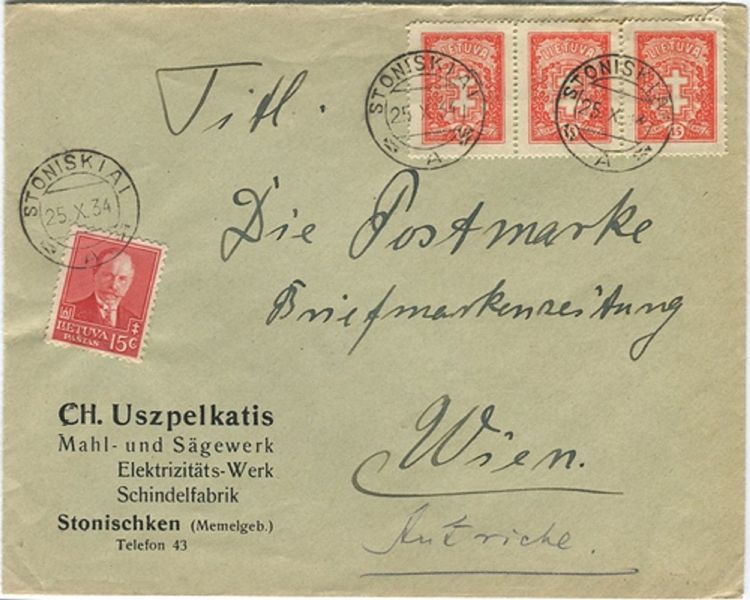 LIETUVA LIETUVA LIETUVA
15
STONISKIAI
25.X.34
A
STONISKIAI
25.X.34
A
Titl.
STONISKIAI
25.X.34
A
Die Postmarke
Briefmarkenzeitung
Wien.
Autriche.
LIETUVA
PAŠTAS
15 C
CH. Uszpelkatis
Mahl- und Sägewerk
Elektrizitäts-Werk
Schindelfabrik
Stonischken (Memelgeb.)
Telefon 43